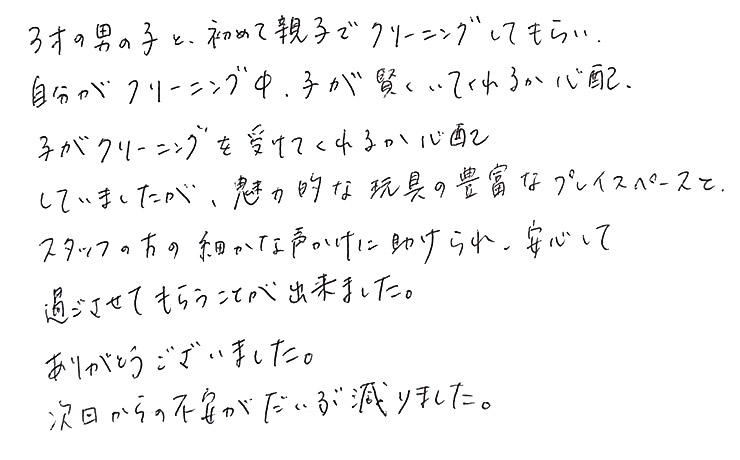 3才の男の子と、初めて親子でクリーニングしてもらい、
自分がクリーニング中、子が賢くいてくれるか心配、
子がクリーニングを受けてくれるか心配
していましたが、魅力的な玩具の豊富なプレイスペースと、
スタッフの方の細かな声かけに助けられ、安心して
過ごさせてもらうことが出来ました。
ありがとうございました。
次回からの不安がだいぶ減りました。